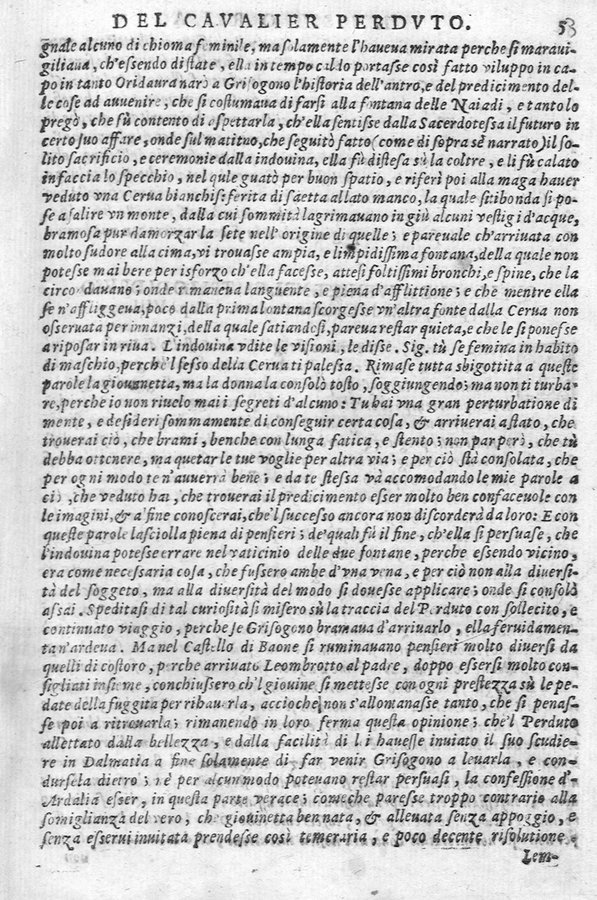 DEL CAVALIER PERDVTO. 53
gnale alcuno di chioma feminile, ma solamente l'haueua mirata perche si maraui-
gliaua, ch'essendo distate, ella in tempo caldo portasse così fatto viluppo in ca-
po in tanto Oridaura narò a Grisogono l'historia dell'antro, e del predicimento del-
le cose ad auuenire, che si costumaua di farsi alla fontana delle Naiadi, e tanto lo
pregò, che fù contento di aspettarla, ch'ella sentisse dalla Sacerdotessa il futuro in
certo suo affare, onde sul matituo, che seguitò fatto (come di sopra sè narrato) il so-
lito sacrificio, e ceremonie dalla indouina, ella fù distesa sù la coltre, e li fù calato
in faccia lo specchio, nel qule guatò per buon spatio, e riferì poi alla maga hauer
veduto vna Cerua bianchiss: ferita di saetta al lato manco, la quale sitibonda si po-
se a salire vn monte, dalla cui sommità lagrimauano in giù alcuni vestigi d'acque,
bramosa pur d'amorzar la sete nell'origine di quelle; e pareuale ch'arriuata con
molto sudore alla cima, vi trouasse ampia, e limpidissima fontana, della quale non
potesse mai bere per isforzo ch'ella facesse, attesi foltissimi bronchi, e spine, che la
circodauano; onde rimaneua languente, e piena d'afflittione; e che mentre ella
se n'affliggeua, poco dalla prima lontana scorgesse vn'altra fonte dalla Cerua non
osseruata per innanzi, della quale satiandosi, pareua restar quieta, e che le si ponesse
a riposar in riua. L'indouina vdite le visioni, le disse. Sig. tù se femina in habito
di maschio, perche'l sesso della Cerua ti palesa. Rimase tutta sbigottita a queste
parole la giouanetta, ma la donna la consolò tosto, soggiungendo; ma non ti turba-
re, perche io non riuelo mai i segreti d'alcuno: Tu hai vna gran perturbatione di
mente, e desideri sommamente di conseguir certa cosa, & arriuerai a stato, che
trouerai ciò, che brami, benche con lunga fatica, e stento; non par però, che tù
debba ottenere, ma quetar le tue voglie per altra via; e per ciò stà consolata, che
per ogni modo te n'auuerrà bene; e da te stessa và accomodando le mie parole a
ciò, che veduto hai, che trouerai il predicimento esser molto ben confaceuole con
le imagini, & a fine conoscerai, che'l successo ancora non discorderà da loro: E con
queste parole lasciolla piena di pensieri; de'quali fù il fine, ch'ella si persuase, che
l'indouina potesse errare nel vaticinio delle due fontane, perche essendo vicino,
era come necessaria cosa, che fussero ambe d'vna vena, e per ciò non alla diuersi-
tà del soggeto, ma alla diuersità del modo si douesse applicare; onde si consolò
assai. Speditasi di tal curiosità si misero sù la traccia del Perduto con sollecito, e
continuato viaggio, perche se Grisogono bramaua d'arriuarlo, ella feruidamen-
ta n'ardeua. Ma nel Castello di Baone si ruminauano pensieri molto diuersi da
quelli di costoro, perche arriuato Leombrotto al padre, doppo essersi molto con-
sigliati insieme, conchiussero ch'l giouine si mettesse con ogni prestezza sù le pe-
date della fuggita per rihauerla, accioche non s'allontanasse tanto, che si penas-
se poi a ritrouarla; rimanendo in loro ferma questa opinione; che'l Perduto
allettato dalla bellezza, e dalla facilità di lei hauesse inuiato il suo scudie-
re in Dalmatia a fine solamente di far venir Grisogono a leuarla, e con-
dursela dietro; nè per alcun modo poteuano restar persuasi, la confessione d'
Ardalia esser, in questa parte verace; comeche paresse troppo contrario alla
somiglianza del vero, che giouinetta ben nata, & alleuata senza appoggio, e
senza esserui inuitata prendesse così temeraria, e poco decente risolutione.
Lem-